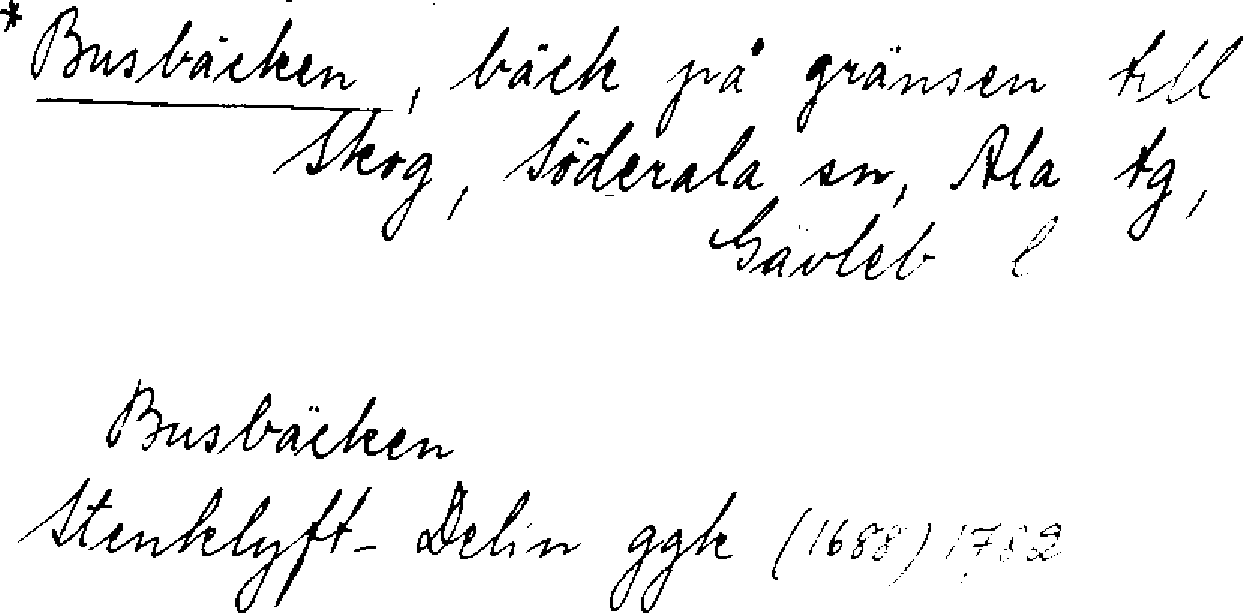 *Busbäcken, bäck på gränsen till
Skog, Söderala sn, Ala tg,
Gävleb l
Busbäcken
Stenklyft- Delin ggk (1688) 1782